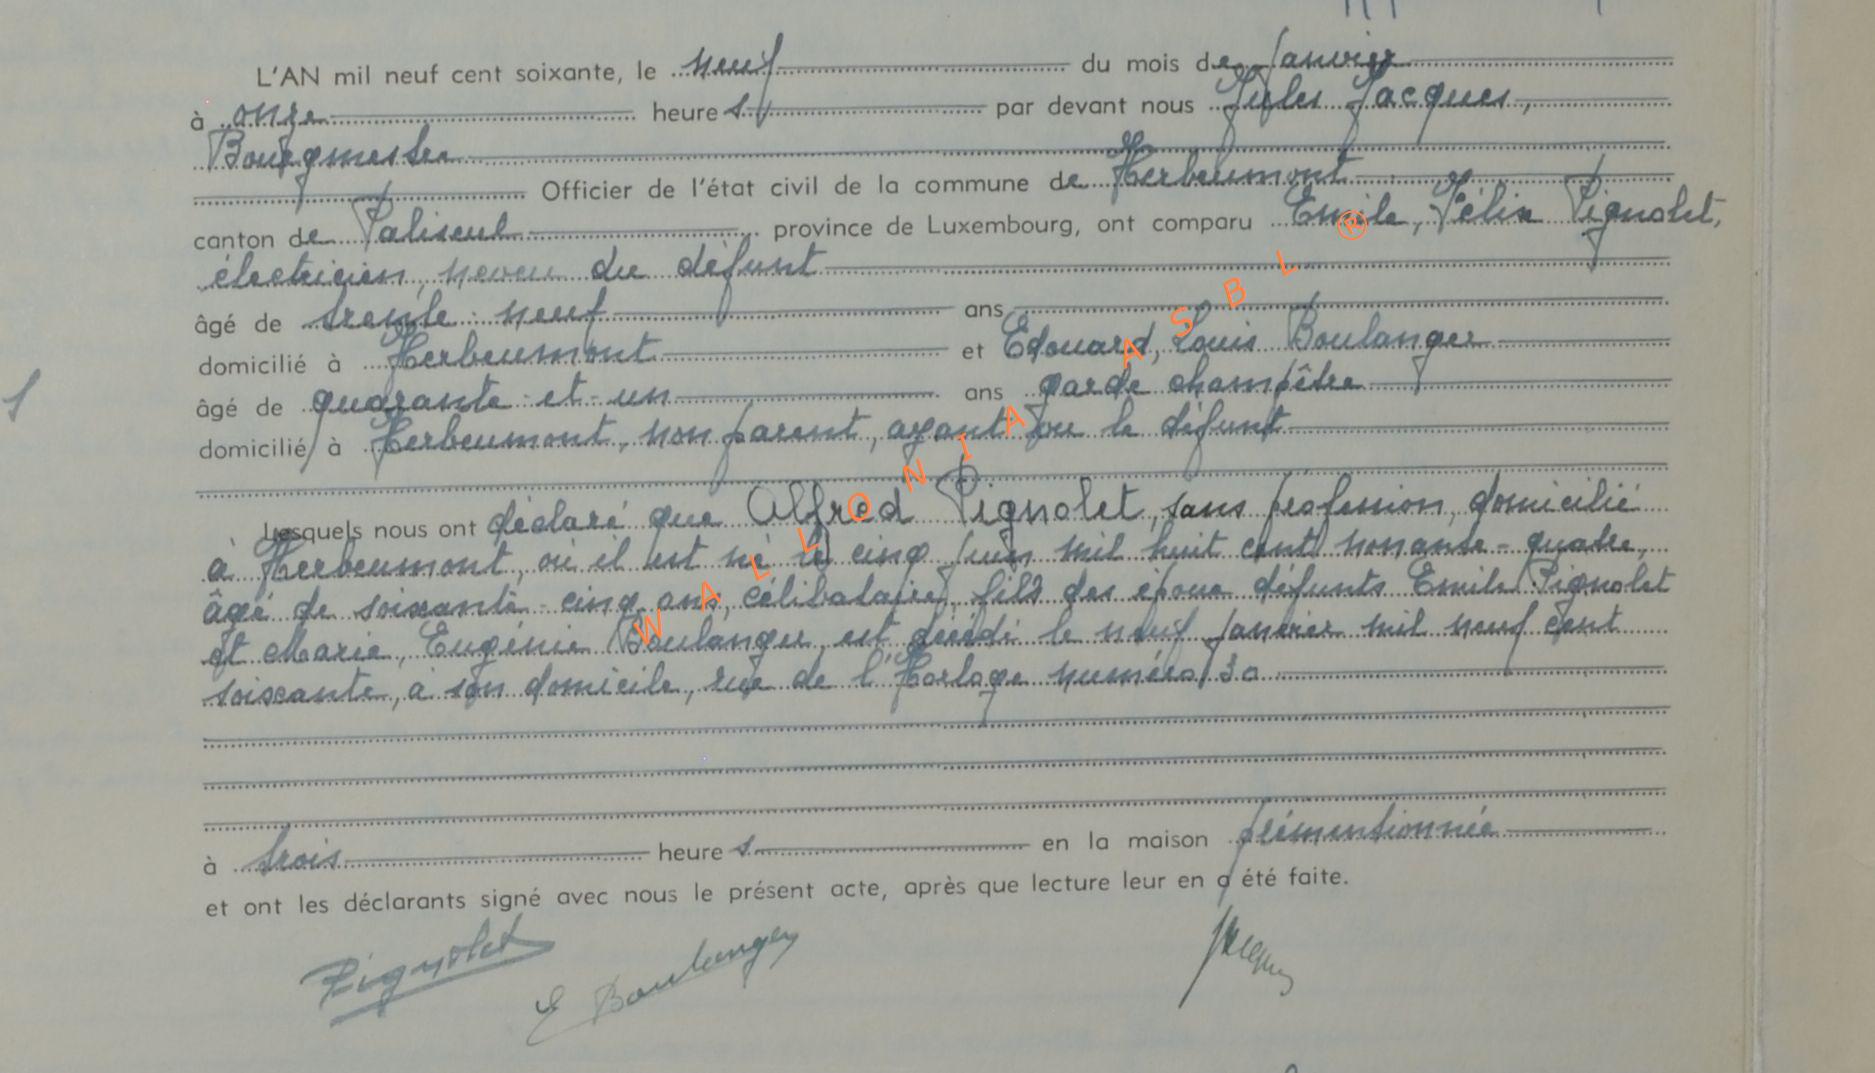 L'AN mil neuf cent soixante, le neuf du mois de janvier
à onze heures par devant nous Jules Jacques,
Bourgmestre
Officier de l'état civil de la commune de Herbeumont
canton de Paliseul province de Luxembourg, ont comparu Emile, Félix Pignolet,
électricien, neveu du défunt
âgé de trente-neuf ans
domicilié à Herbeumont et Edouard, Louis Boulanger
âgé de quarante-et-un ans garde champêtre
domicilié à Herbeumont, non parent, ayant vu le défunt
Lesquels nous ont déclaré que Alfred Pignolet, sans profession, domicilié
à Herbeumont, où il est né le cinq juin mil huit cent nonante-quatre,
âgé de soixante-cinq ans, célibataire, fils des époux défunts Emile Pignolet
et Marie, Eugénie Boulanger, est décédé le neuf janvier mil neuf cent
soixante, à son domicile, rue de l'Horloge numéro 30
à trois heures en la maison prémentionnée
et ont les déclarants signé avec nous le présent acte, après que lecture leur en a été faite.
Pignolet E Boulanger Jacques
WALLONIA ASBL ®
1